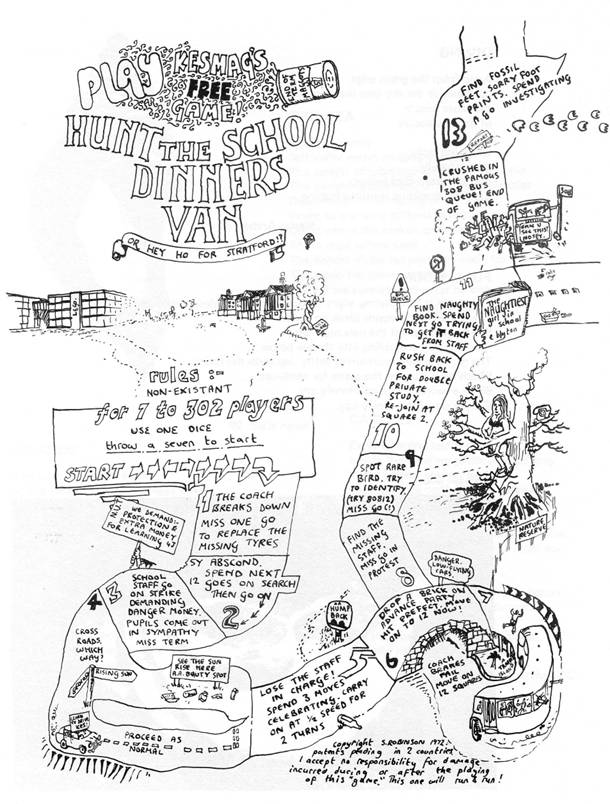 PLAY
KESMAG'S
FREE
GAME!
HUNT THE SCHOOL
DINNERS
VAN
OR HEY HO FOR STRATFORD!?
rules :-
NON-EXISTANT
for 1 to 302 players
USE ONE DICE
throw a seven to start
START
1 THE COACH
BREAKS DOWN
MISS ONE GO
TO REPLACE THE
MISSING TYRES
5Y ABSCOND.
SPEND NEXT
12 GOES ON SEARCH
THEN GO ON
2
WE DEMAND:-
PROTECTION &
EXTRA MONEY
FOR LEARNING 4J
3
SCHOOL
STAFF GO
ON STRIKE
DEMANDING
DANGER MONEY.
PUPILS COME OUT
IN SYMPATHY
MISS TERM
4
CROSS
ROADS.
WHICH
WAY?
RISING SUN
SEE THE SUN
RISE HERE
A.A. BEAUTY SPOT
PROCEED AS
NORMAL
HUMP
BACK
5
LOSE THE STAFF
IN CHARGE!
SPEND 3 MOVES
CELEBRATING. CARRY
ON AT ½ SPEED FOR
2 TURNS
6
COACH
BRAKES
FAIL
MOVE ON
12 SQUARES
7
DROP A BRICK ON
HIT PREFECT. MOVE
ON TO 12 NOW!
DANGER.
LOW-FLYING
CARS.
8
FIND THE
MISSING
STAFF.
MISS GO IN
PROTEST
9
SPOT RARE
BIRD. TRY
TO IDENTIFY.
(TRY 80812)
MISS GO (!)
NATURE
RESERVE
10
RUSH BACK
TO SCHOOL
FOR DOUBLE
PRIVATE
STUDY.
RE-JOIN AT
SQUARE 2.
11
FIND NAUGHTY
BOOK. SPEND
NEXT GO TRYING
TO GET IT BACK
FROM STAFF
THE
NAUGHTIEST
girl in
school
e blyton
BUS
QUEUE
12
CRUSHED IN
THE FAMOUS
308 BUS
QUEUE! END
OF GAME.
308
13
FIND FOSSIL
FEET. SORRY FOOT
PRINTS. SPEND
A GO INVESTIGATING
copyright S.ROBINSON 1972.
patents pending in 2 countries.
I accept no responsibility for damage
incurred during or after the playing
of this "game". This one will run & run!